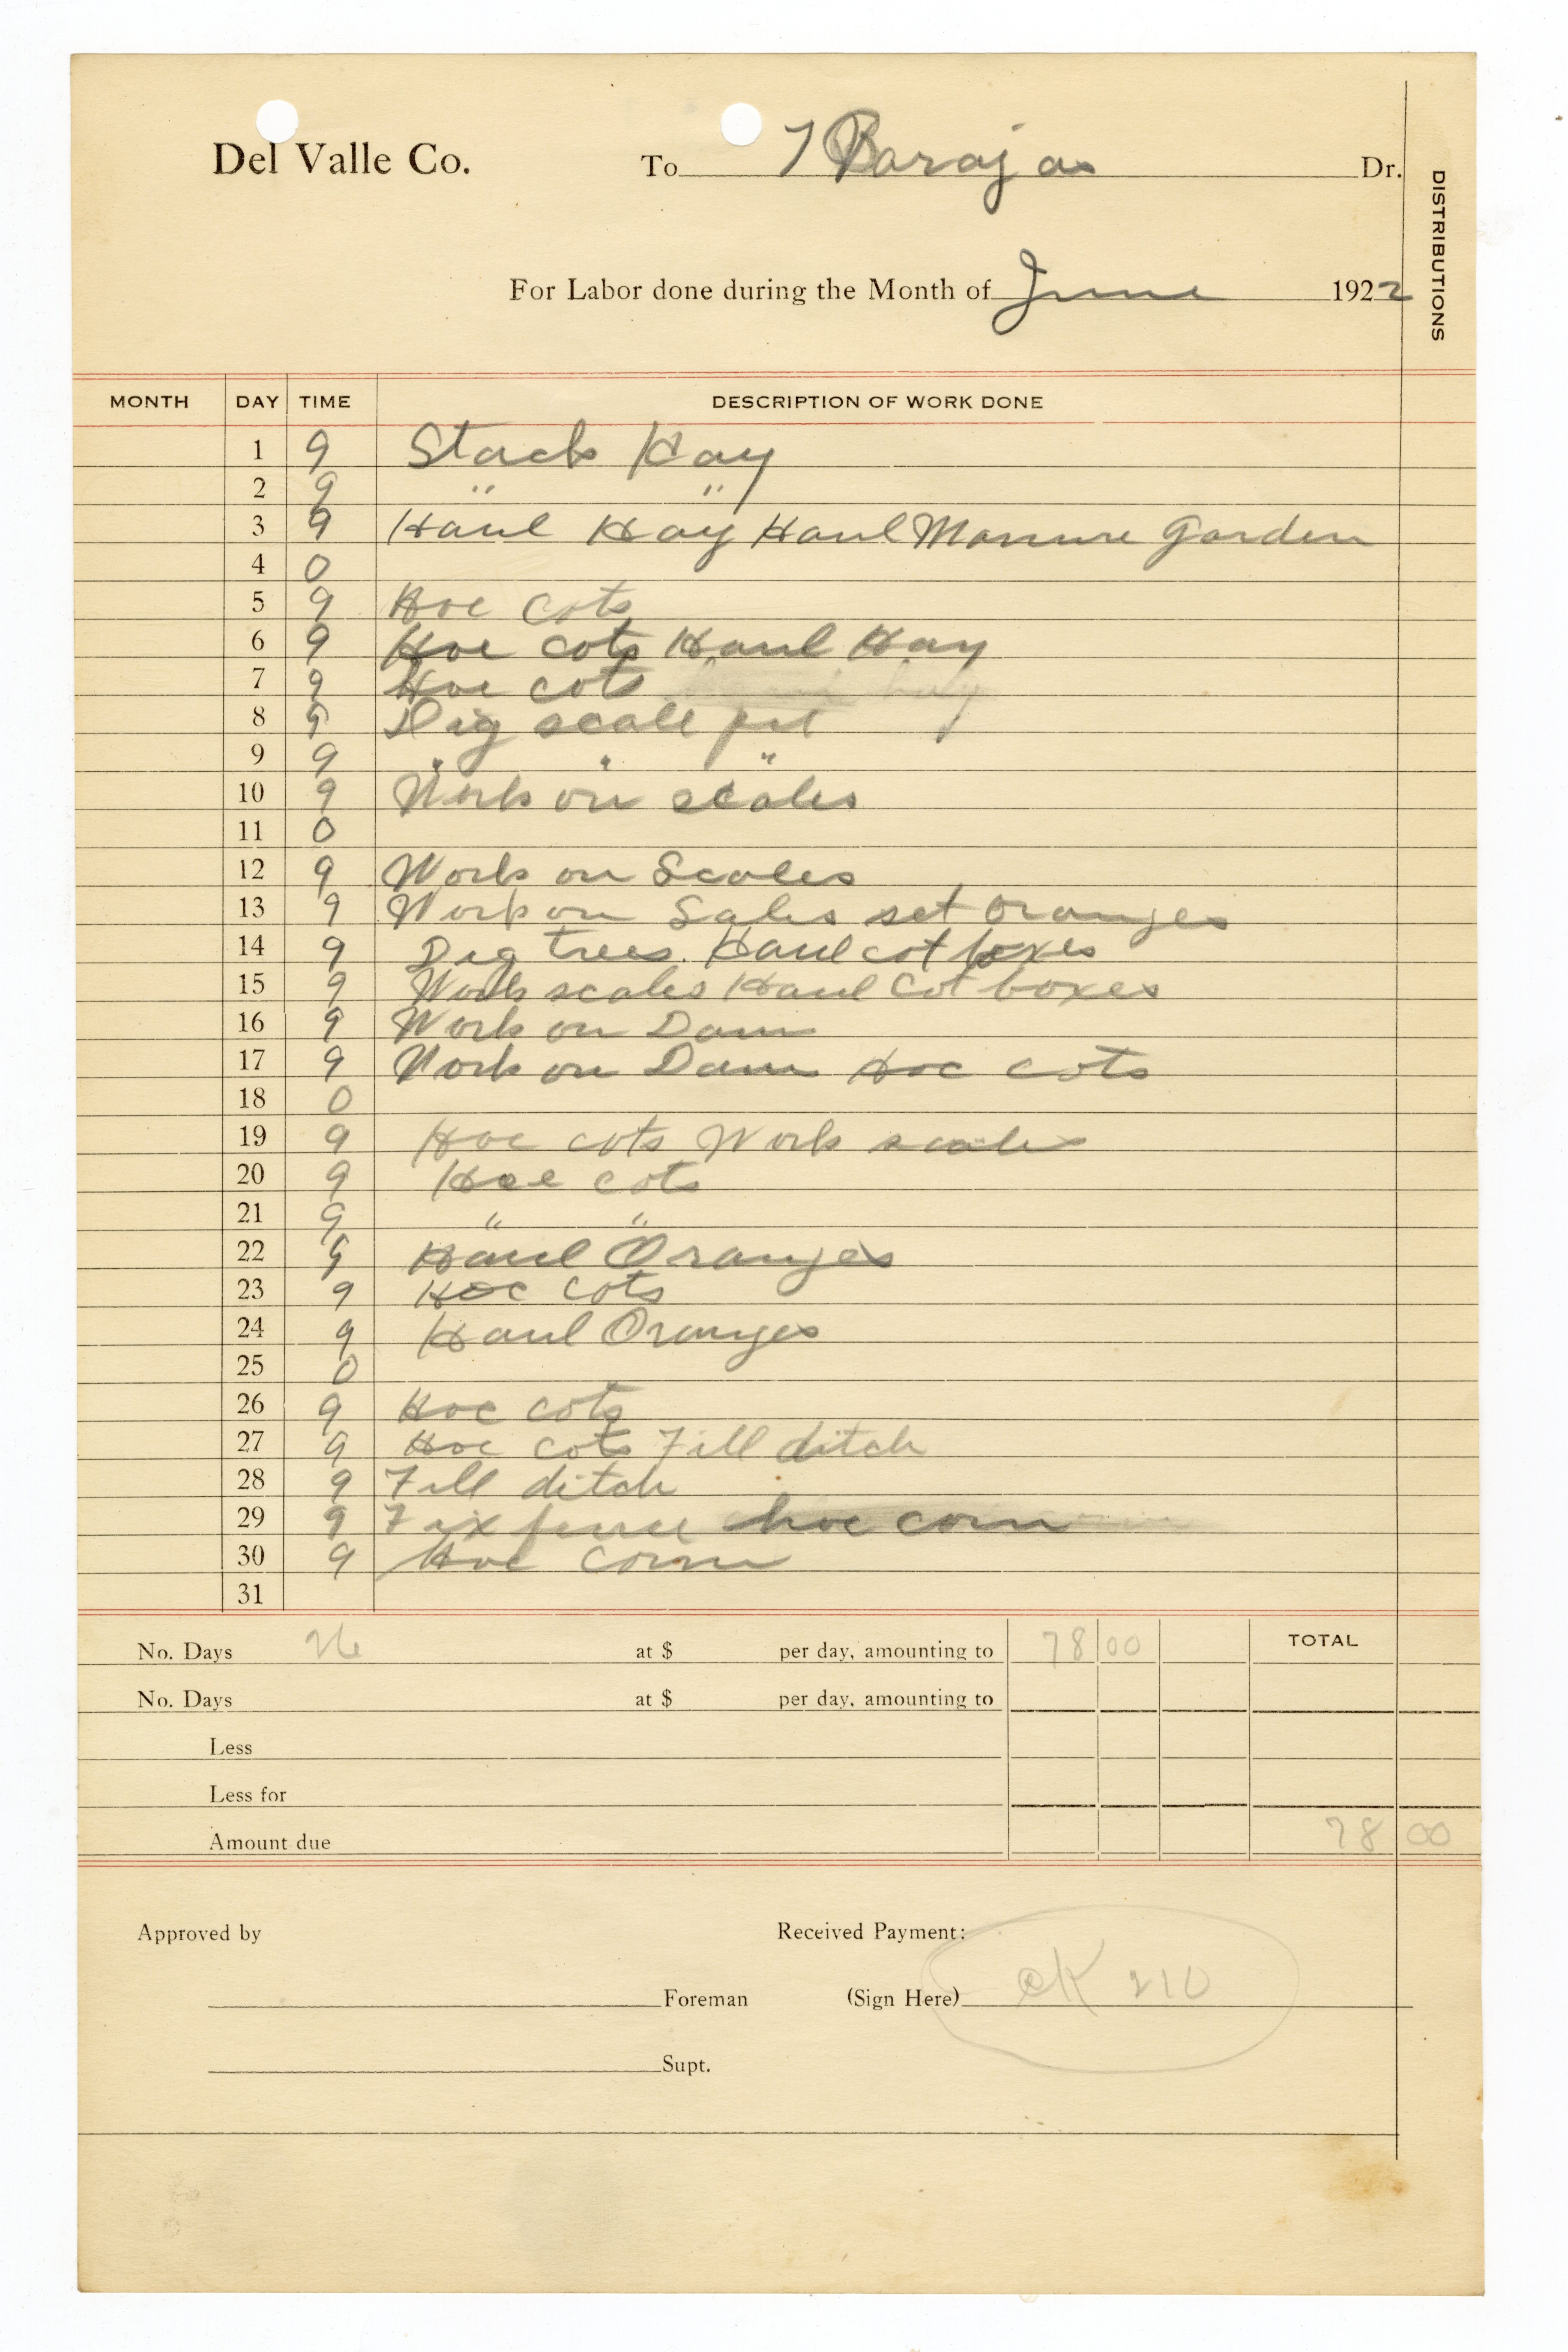 Del Valle Co. To 7 Barajas Dr.
DISTRIBUTIONS
For Labor done during the Month of June 1922
MONTH DAY TIME DESCRIPTION OF WORK DONE
1 9 Stack Hay
2 9 " "
3 9 Haul Hay Haul Manure Garden
4 0
5 9 Hoe cots
6 9 Hoe cots Haul Hay
7 9 Hoe cots
8 9 Dig scale pit
9 9 " " "
10 9 Work on scales
11 0
12 9 Work on Scales
13 9 Work on Sales set oranges
14 9 Dig trees. Haul cot boxes
15 9 Work scales Haul Cot boxes
16 9 Work on Dam
17 9 Work on Dam Hoe cots
18 0
19 9 Hoe cots Work scales
20 9 Hoe cots
21 9 " "
22 9 Haul Oranges
23 9 Hoe cots
24 9 Haul Oranges
25 0
26 9 Hoe cots
27 9 Hoe cots Fill ditch
28 9 Fill ditch
29 9 Fix fence hoe corn
30 9 Hoe corn
31
No. Days 26 at $ per day, amounting to 78 00 TOTAL
No. Days at $ per day, amounting to
Less
Less for
Amount due 78 00
Approved by Received Payment:
Foreman (Sign Here) cK 210
Supt.